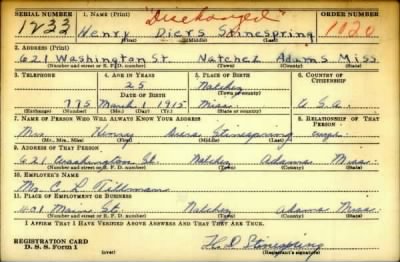 SERIAL NUMBER 1. NAME (Print) "Discharged" ORDER NUMBER
1233 Henry Diers Stinespring 1020
(First) (Middle) (Last)
2. ADDRESS (Print)
621 Washington St. Natchez Adams Miss
(Number and street or R. F. D. number) (Town) (County) (State)
3. TELEPHONE 4. AGE IN YEARS 5. PLACE OF BIRTH 6. COUNTRY OF CITIZENSHIP
25 Natchez
DATE OF BIRTH (Town or county)
775 March 1 1915 Miss. U.S.A.
(Exchange) (Number) (Mo.) (Day) (Yr.) (State or country)
7. NAME OF PERSON WHO WILL ALWAYS KNOW YOUR ADDRESS 8. RELATIONSHIP OF THAT PERSON
Mrs Henry Diers Stinespring
(Mr., Mrs., Miss) (First) (Middle) (Last)
9. ADDRESS OF THAT PERSON
621 Washington St. Natchez Adams Miss.
(Number and street or R. F. D. number) (Town) (County) (State)
10. EMPLOYER'S NAME
Mr. C. L. Tillman
11. PLACE OF EMPLOYMENT OR BUSINESS
401 Main St. Natchez Adams Miss.
(Number and street or R. F. D. number) (Town) (County) (State)
I AFFIRM THAT I HAVE VERIFIED ABOVE ANSWERS AND THAT THEY ARE TRUE.
REGISTRATION CARD
D. S. S. Form 1 (over) H. D. Stinespring
(Registrant's signature)